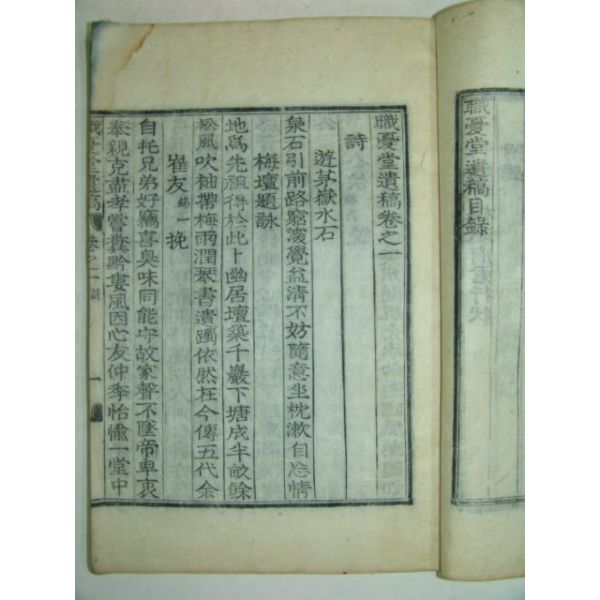 職憂堂遺稿目錄
職憂堂遺稿卷之一
詩
遊茅嶽水石
泉石引前路窮深覺益淸不妨隨意坐枕漱自怡情
梅壇題詠
地爲先祖得於此卜幽居壇築千巖下塘成半畝餘
松風吹袖帶梅雨潤琴書遺躅依然在今傳五代余
崔友 一挽
自托兄弟好飄喜臭味同能守故家聲不墜帝卑衷
奉親克盡孝嘗 黔婁風因心友仲季怡愉一堂中
職憂堂遺稿 卷之一 詩 一